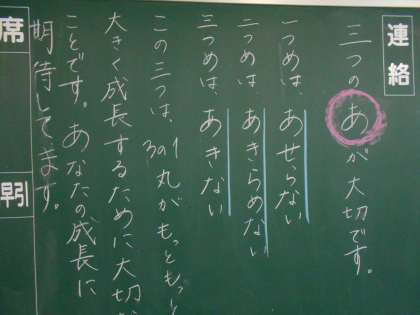 連絡
三つのあが大切です。
一つめは、あせらない
二つめは、あきらめない
三つめは、あきない
この三つは、3の1の丸がもっともっと
大きく成長するために大切な
ことです。あなたの成長に
期待してます。
席
早引